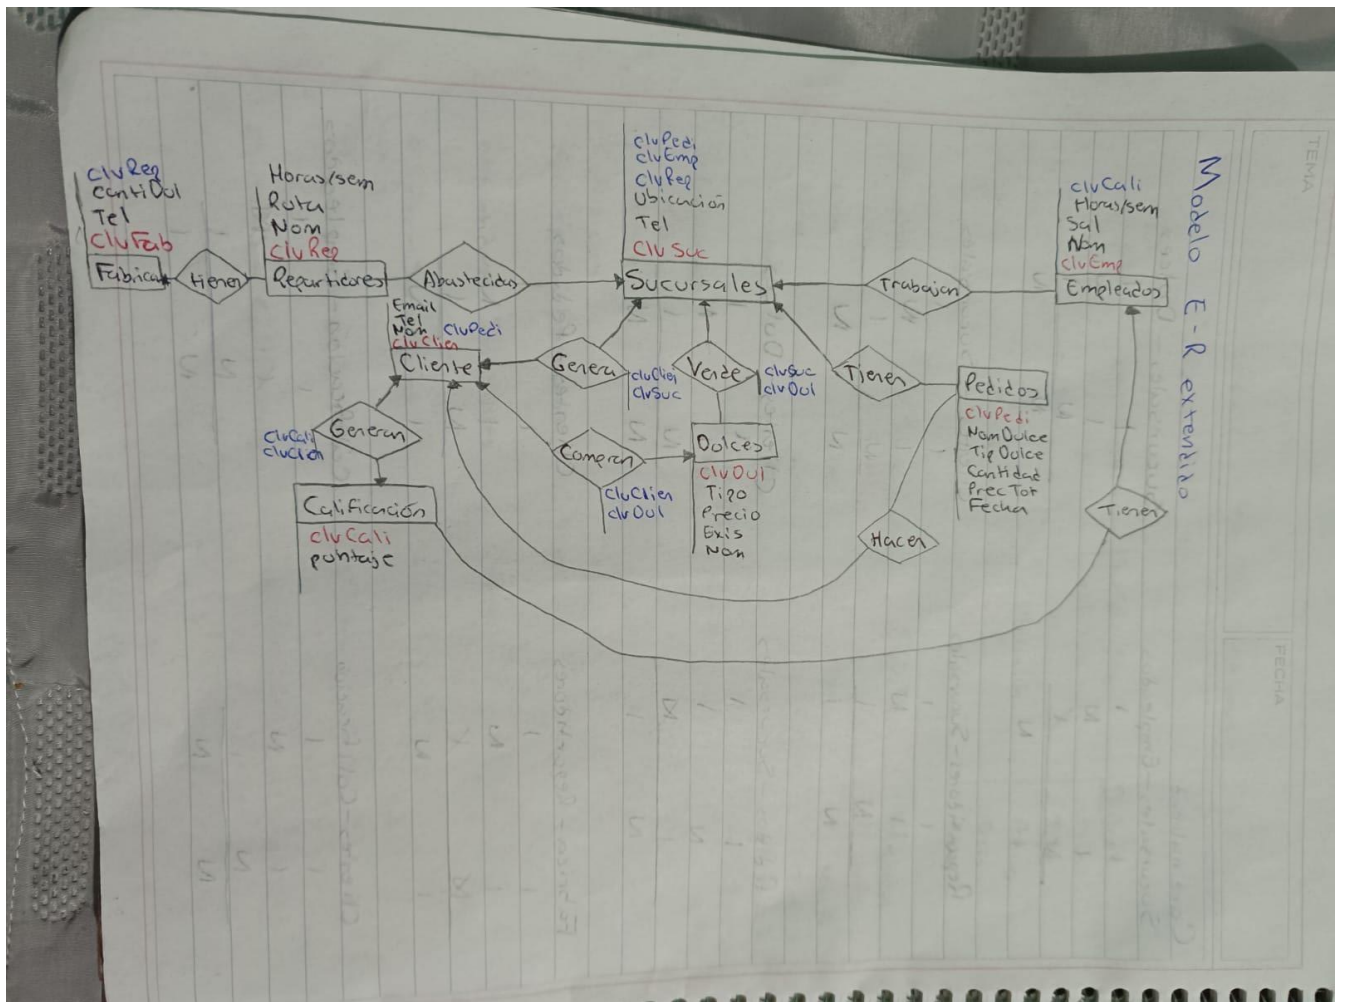 Modelo E-R extendido
TEMA
FECHA
clvRep
cantiDul
Tel
clvFab
Fabrica
tienen
Horas/sem
Ruta
Nom
clvRep
Repartidores
Abastecidas
clvPedi
clvEmp
clvRep
Ubicación
Tel
clvSuc
Sucursales
Trabajan
clvCali
Horas/sem
Sal
Nom
clvEmp
Empleados
Email
Tel
Nom clvPedi
clvClien
Cliente
Genera
clvClien
clvSuc
Vende
clvSuc
clvDul
Tienen
Pedidos
clvPedi
NomDulce
TipDulce
Cantidad
PrecTot
Fecha
Generan
clvCali
clvClien
Compran
clvClien
clvDul
Dulces
clvDul
Tipo
Precio
Exis
Nom
Calificación
clvCali
puntaje
Hacen
Tienen